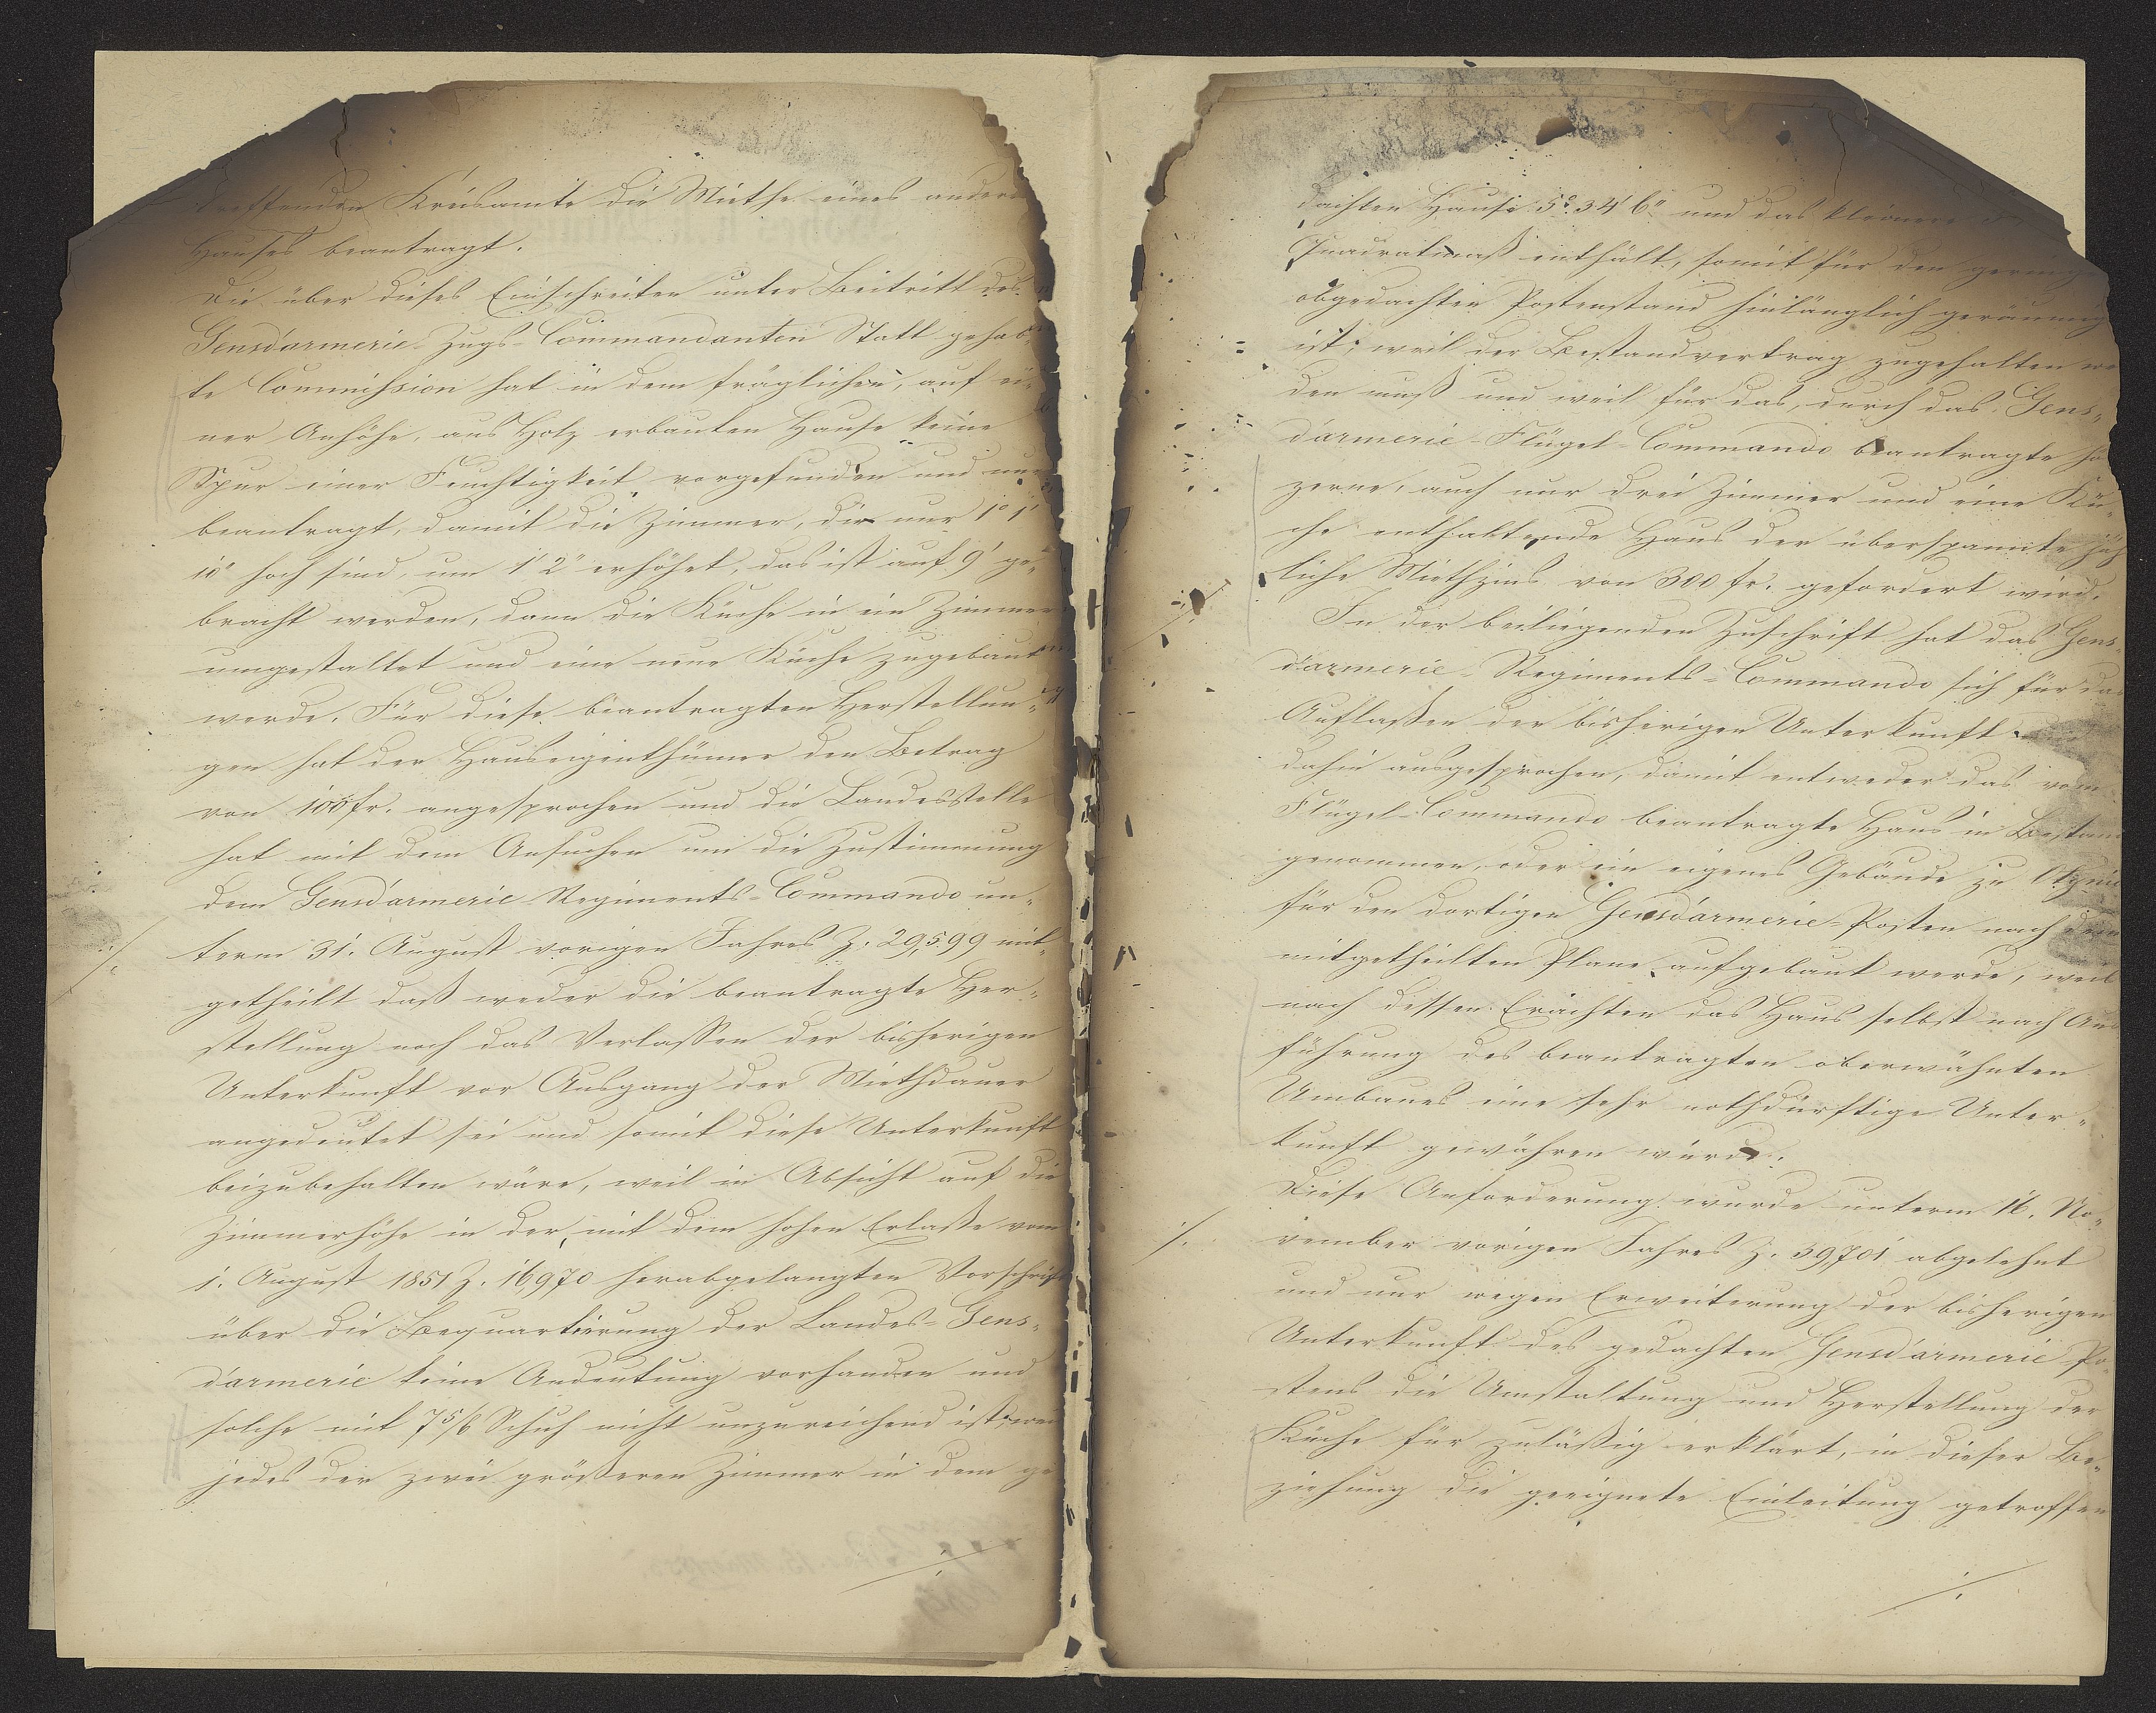 treffenden Kreisamte die Miethe eines andern
Hauses beantragt.
Die über dieses Einschreiten unter Beitritt des
Gensdarmerie-Zugs-Commandanten Statt gehab¬
te Commission hat in dem fräglichen, auf ei¬
ner Anhöhe, aus Holz erbauten Hause keine
Spur einer Feuchtigkeit vorgefunden und nur
beantragt, damit die Zimmer, die nur 1° 1'
10" hoch sind, um 1' 2" erhöhet, das ist auf 9' ge¬
bracht werden, dann die Küche in ein Zimmer
umgestaltet und eine neue Küche zugebaut
werde. Für diese beantragten Herstellun¬
gen hat der Hauseigenthümer den Betrag
von 100 fr. angesprochen und die Landesstelle
hat mit dem Ansuchen um die Zustimmung
dem Gensdarmerie Regiments-Commando un¬
term 31. August vorigen Jahres Z. 29,599 mit¬
getheilt daß weder die beantragte Her¬
stellung noch das Verlassen der bisherigen
Unterkunft vor Ausgang der Miethdauer
angedeutet sei und somit diese Unterkunft
beizubehalten wäre, weil in Absicht auf die
Zimmerhöhe in der, mit dem hohen Erlaße vom
1. August 1851 Z. 16970 herabgelangten Vorschrift
über die Bequartierung der Landes-Gens¬
darmerie keine Andeutung vorhanden und
solche mit 7 5/6 Schuh nicht unzureichend ist, weil
jedes der zwei größeren Zimmer in dem ge
./.
dachten Hause 5° 34' 6" und das kleinere
Quadratmaß enthält, somit für den gering
obgedachten Postenstand hinlänglich geräumig
ist, weil der Bestandvertrag zugehalten wer
den muß und weil für das, durch das Gens¬
darmerie-Flügel-Commando beantragte höl
zerne, auch nur drei Zimmer und eine Kü¬
che enthaltende Haus der überspannte jähr
liche Miethzins von 300 fr. gefordert wird.
In der beiliegenden Zuschrift hat das Gens¬
darmerie-Regiments-Commando sich für das
Auflaßen der bisherigen Unterkunft und
dahin ausgesprochen, damit entweder das vom
Flügel-Commando beantragte Haus in Bestand
genommen, oder ein eigenes Gebäude zu
für den dortigen Gensdarmerie-Posten nach dem
mitgetheilten Plane aufgebaut werde, weil
nach dessen Erachten das Haus selbst nach Aus
führung des beantragten oberwähnten
Umbaues eine sehr nothdürftige Unter¬
kunft gewähren würde.
Diese Anforderung wurde unterm 16. No¬
vember vorigen Jahres Z. 39,701 abgelehnt
und nur wegen Erweiterung der bisherigen
Unterkunft des gedachten Gensdarmerie Po¬
stens die Umstaltung und Herstellung der
Küche für zuläßig erklärt, in dieser Be¬
ziehung die geeignete Einleitung getroffen
./.